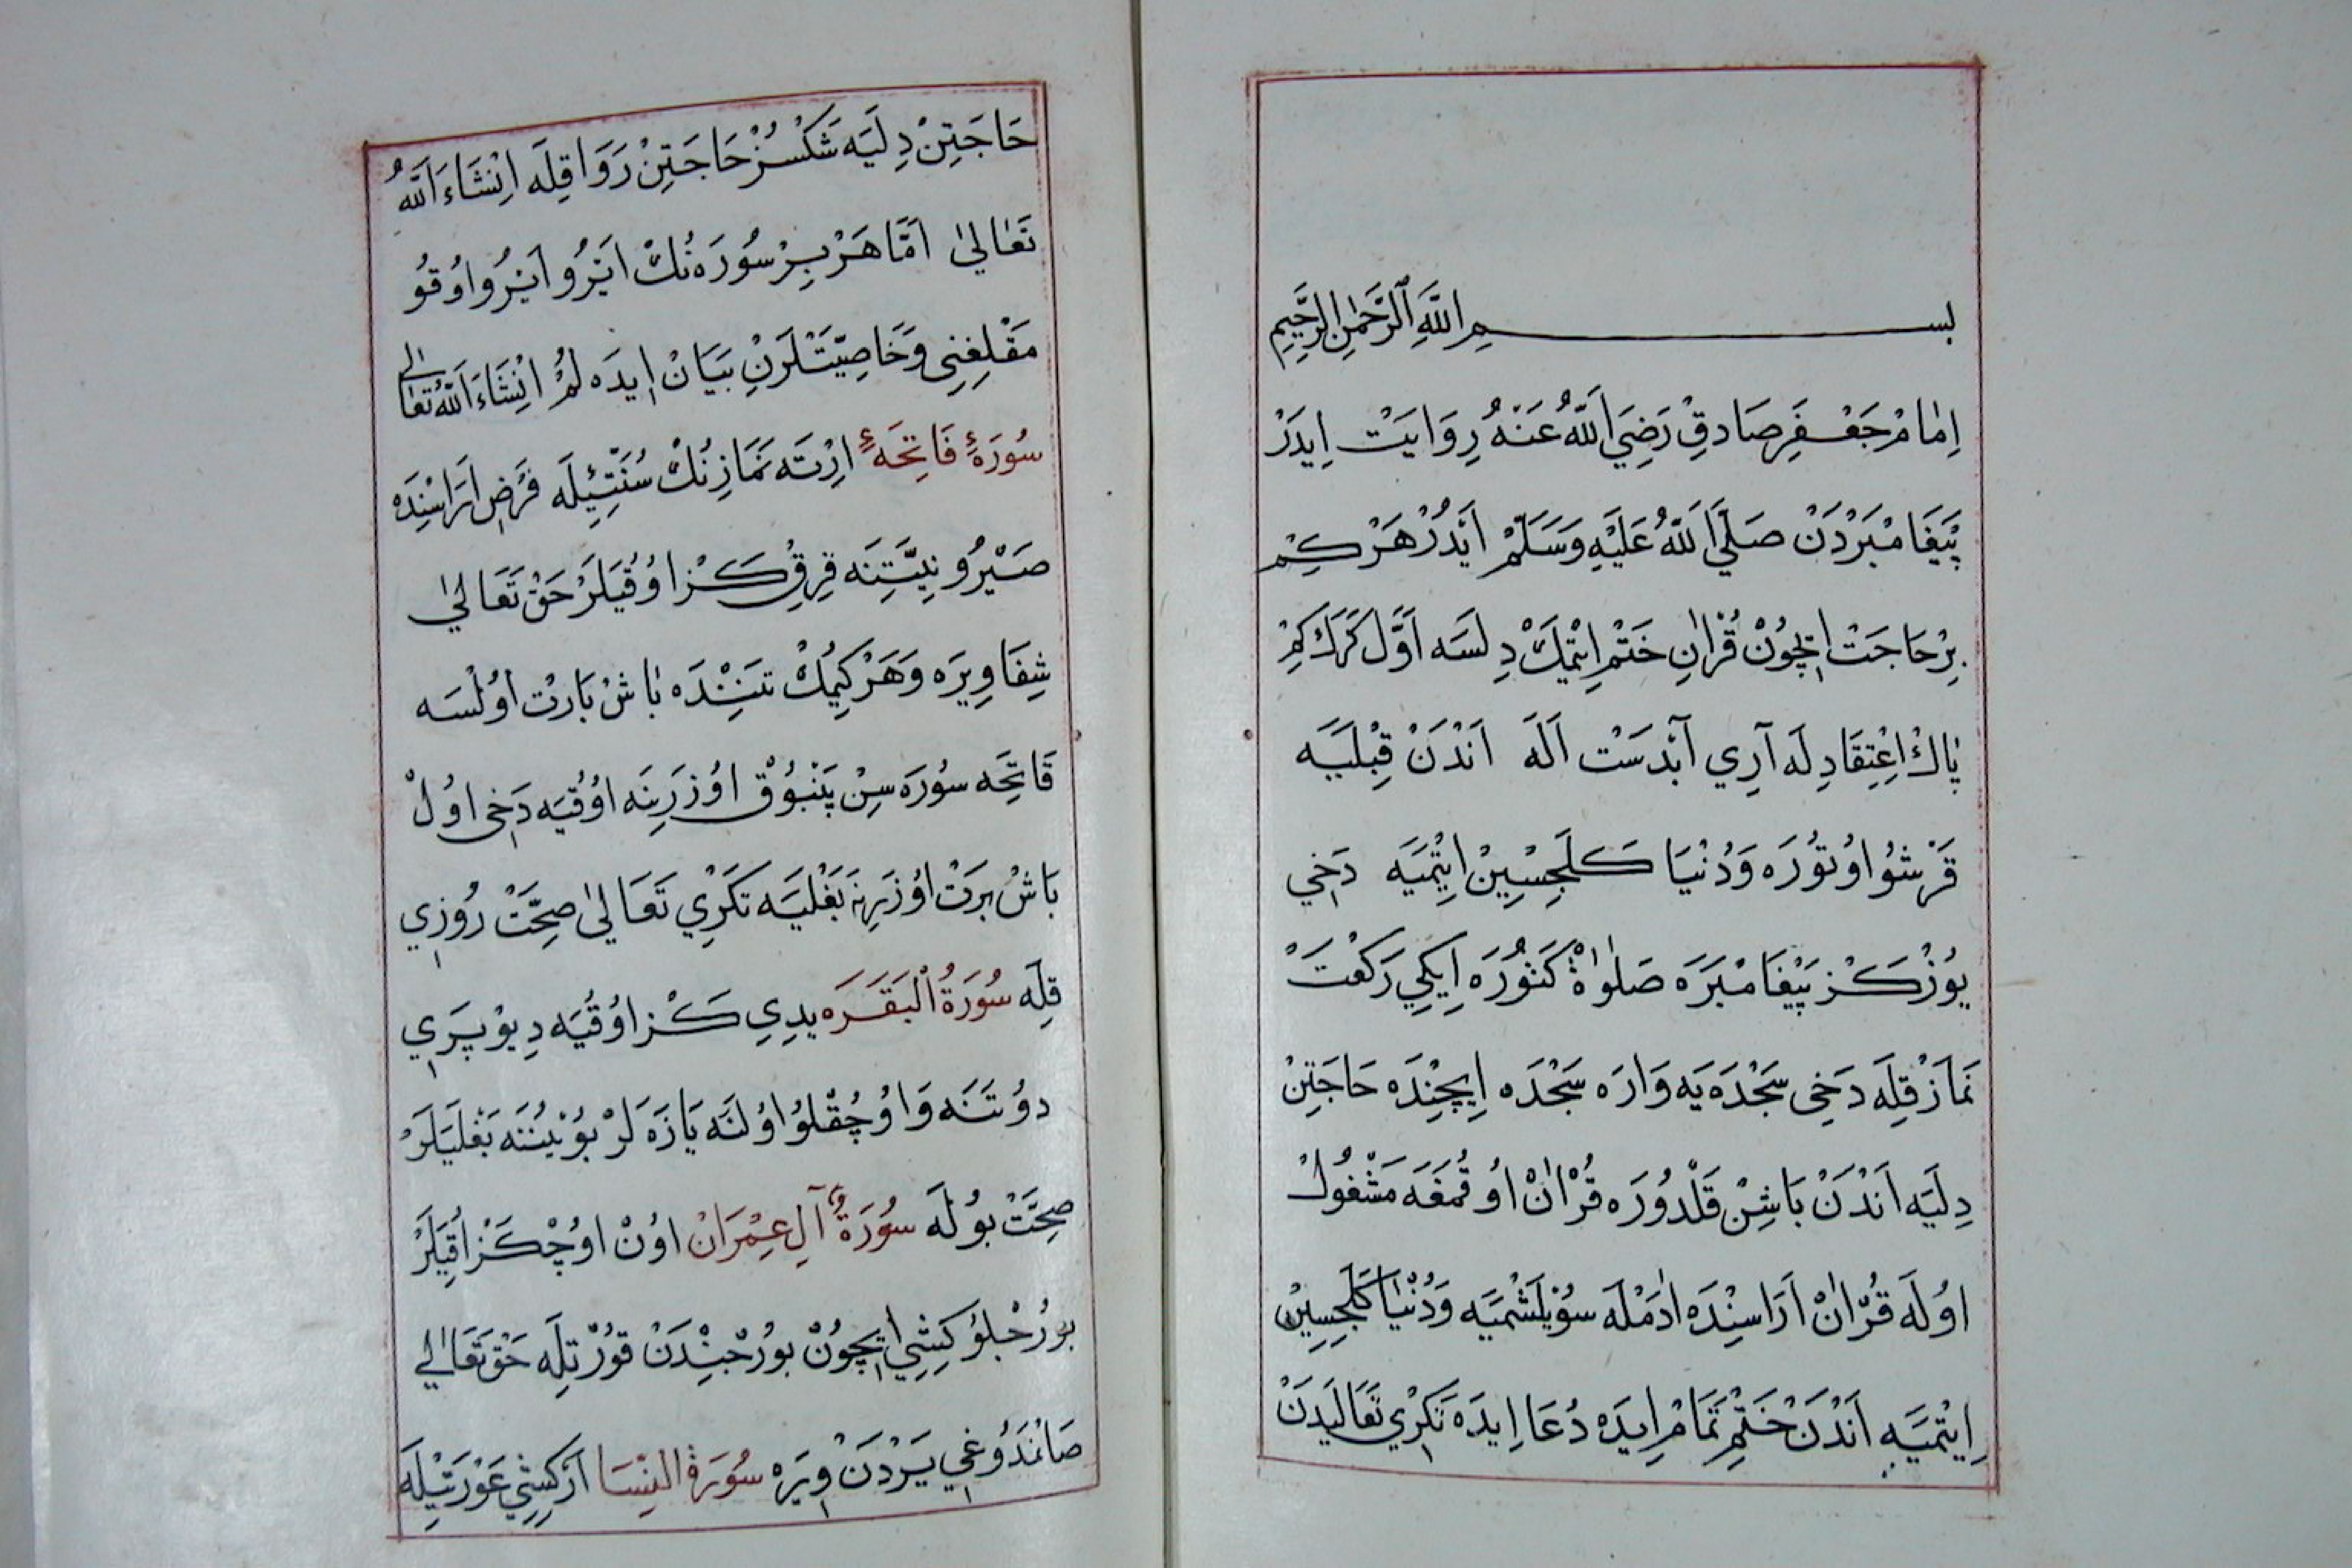 بِسْمِ اللّٰهِ الرَّحْمٰنِ الرَّحِيمِ
اِمٰامْ جَعْفَرِ صَادِقْ رَضِيَ اَللّٰهُ عَنْهُ رِوَايَتْ اِيدَرْ
پَيْغَامْبَرْدَنْ صَلَّي اَللّٰهُ عَلَيْهِ وَسَلَّمْ اَيْدُرْ هَرْكِمْ
بِرْ حَاجَتْ اِچُونْ قُرْاٰنِ خَتْمْ اِتْمَكْ دِلَسَه اَوَّلْ كَرَكْ كِمْ
پٰاكْ اِعْتِقَادِلَه آرِي آبْدَسْت اَلَه اَنْدَنْ قِبْلَيَه
قَرْشُو اوُتوُرَه وَدُنْيَا كَلَجِسِينْ اِيتْمَيَه دَخِي
يوُزْ كَزْ پَيْغَامْبَرَه صَلٰوةْ كَتوُرَه اِيكِي رَكْعَتْ
نَمَازْ قِلَه دَخِي سَجْدَه يَه وَارَه سَجْدَه اِيچِنْدَه حَاجَتِنْ
دِلَيَه اَنْدَنْ بَاشِنْ قَلْدوُرَه قُرْاٰنْ اوُقُمَغَه مَشْغُولْ
اوُلَه قُرْاٰنْ اَرَاسِنْدَه اٰدَمْلَه سوُيْلَشْمَيَه وَدُنْيَا كَلَجِسِينْ
اِيتْمَيَه اَنْدَنْ خَتْمِ تَمَامْ اِيدَه دُعَا اِيدَه تَكْرِي تَعَالَيدَنْ
حَاجَتِنْ دِلَيَه شَكْسُزْ حَاجَتِنْ رَوَا قِلَه اِنْشَاءَ اَللّٰهُ
تَعَالٰي اَمَّا هَرْ بِرْ سوُرَه نُكْ اَيْرُو اَيْرُو اوُقوُ
مَقْلِغِنِي وَخَاصِيَّتْلَرَنِ بَيَانْ اِيدَه لُمْ اِنْشَاءَ اَللّٰهُ تَعَالٰي
سُورَۀِ فَاتِحَه اِرْتَه نَمَازِنُكْ سُنَّتِيْلَه فَرَضْ اَرَاسِنْدَه
صَيْرُو نِيَّتِنَه قِرِقْ كَزْ اوُقُيَلَرْ حَقْ تَعَالٰي
شِفَا وِيرَه وَهَرْ كِيمُكْ تَنِنْدَه بَاشْ بَارتْ اوُلْسَه
فَاتِحَه سوُرَه سِنْ پَنْبُوُقْ اوُزَرِينَه اوُقُيَه دَخِي اوُلْ
بَاشْ بَرَتْ اوُزَرِينَه بَغْلَيَه تَكْرِي تَعَالٰي صِحَّتْ رُوزِي
قِلَه سوُرَةُ الْبَقَرَه يِدِي كَزْ اوُقُيَه دِيوْ پَرِي
دوُتَنَه وَاوُچُقْلوُ اوُلَنَه يَازَه لَرْ بوُيْنُنَه بَغْلَيَلَرْ
صِحَّتْ بوُلَه سُورَةُ آلِ عِمْرَانْ اوُنْ اوُچْ كَزْ اُقِيَلَرْ
بوُرُجْلوُ كِشِي اِيچوُنْ بوُرْجِنْدَنْ قوُرْتِلَه حَقْ تَعَالٰي
صَانْمَدوُغِي يَرْدَنْ وِيرَه سوُرَةُ النِّسَا اَرْ كِشِي عَوْرَتِيْلَه